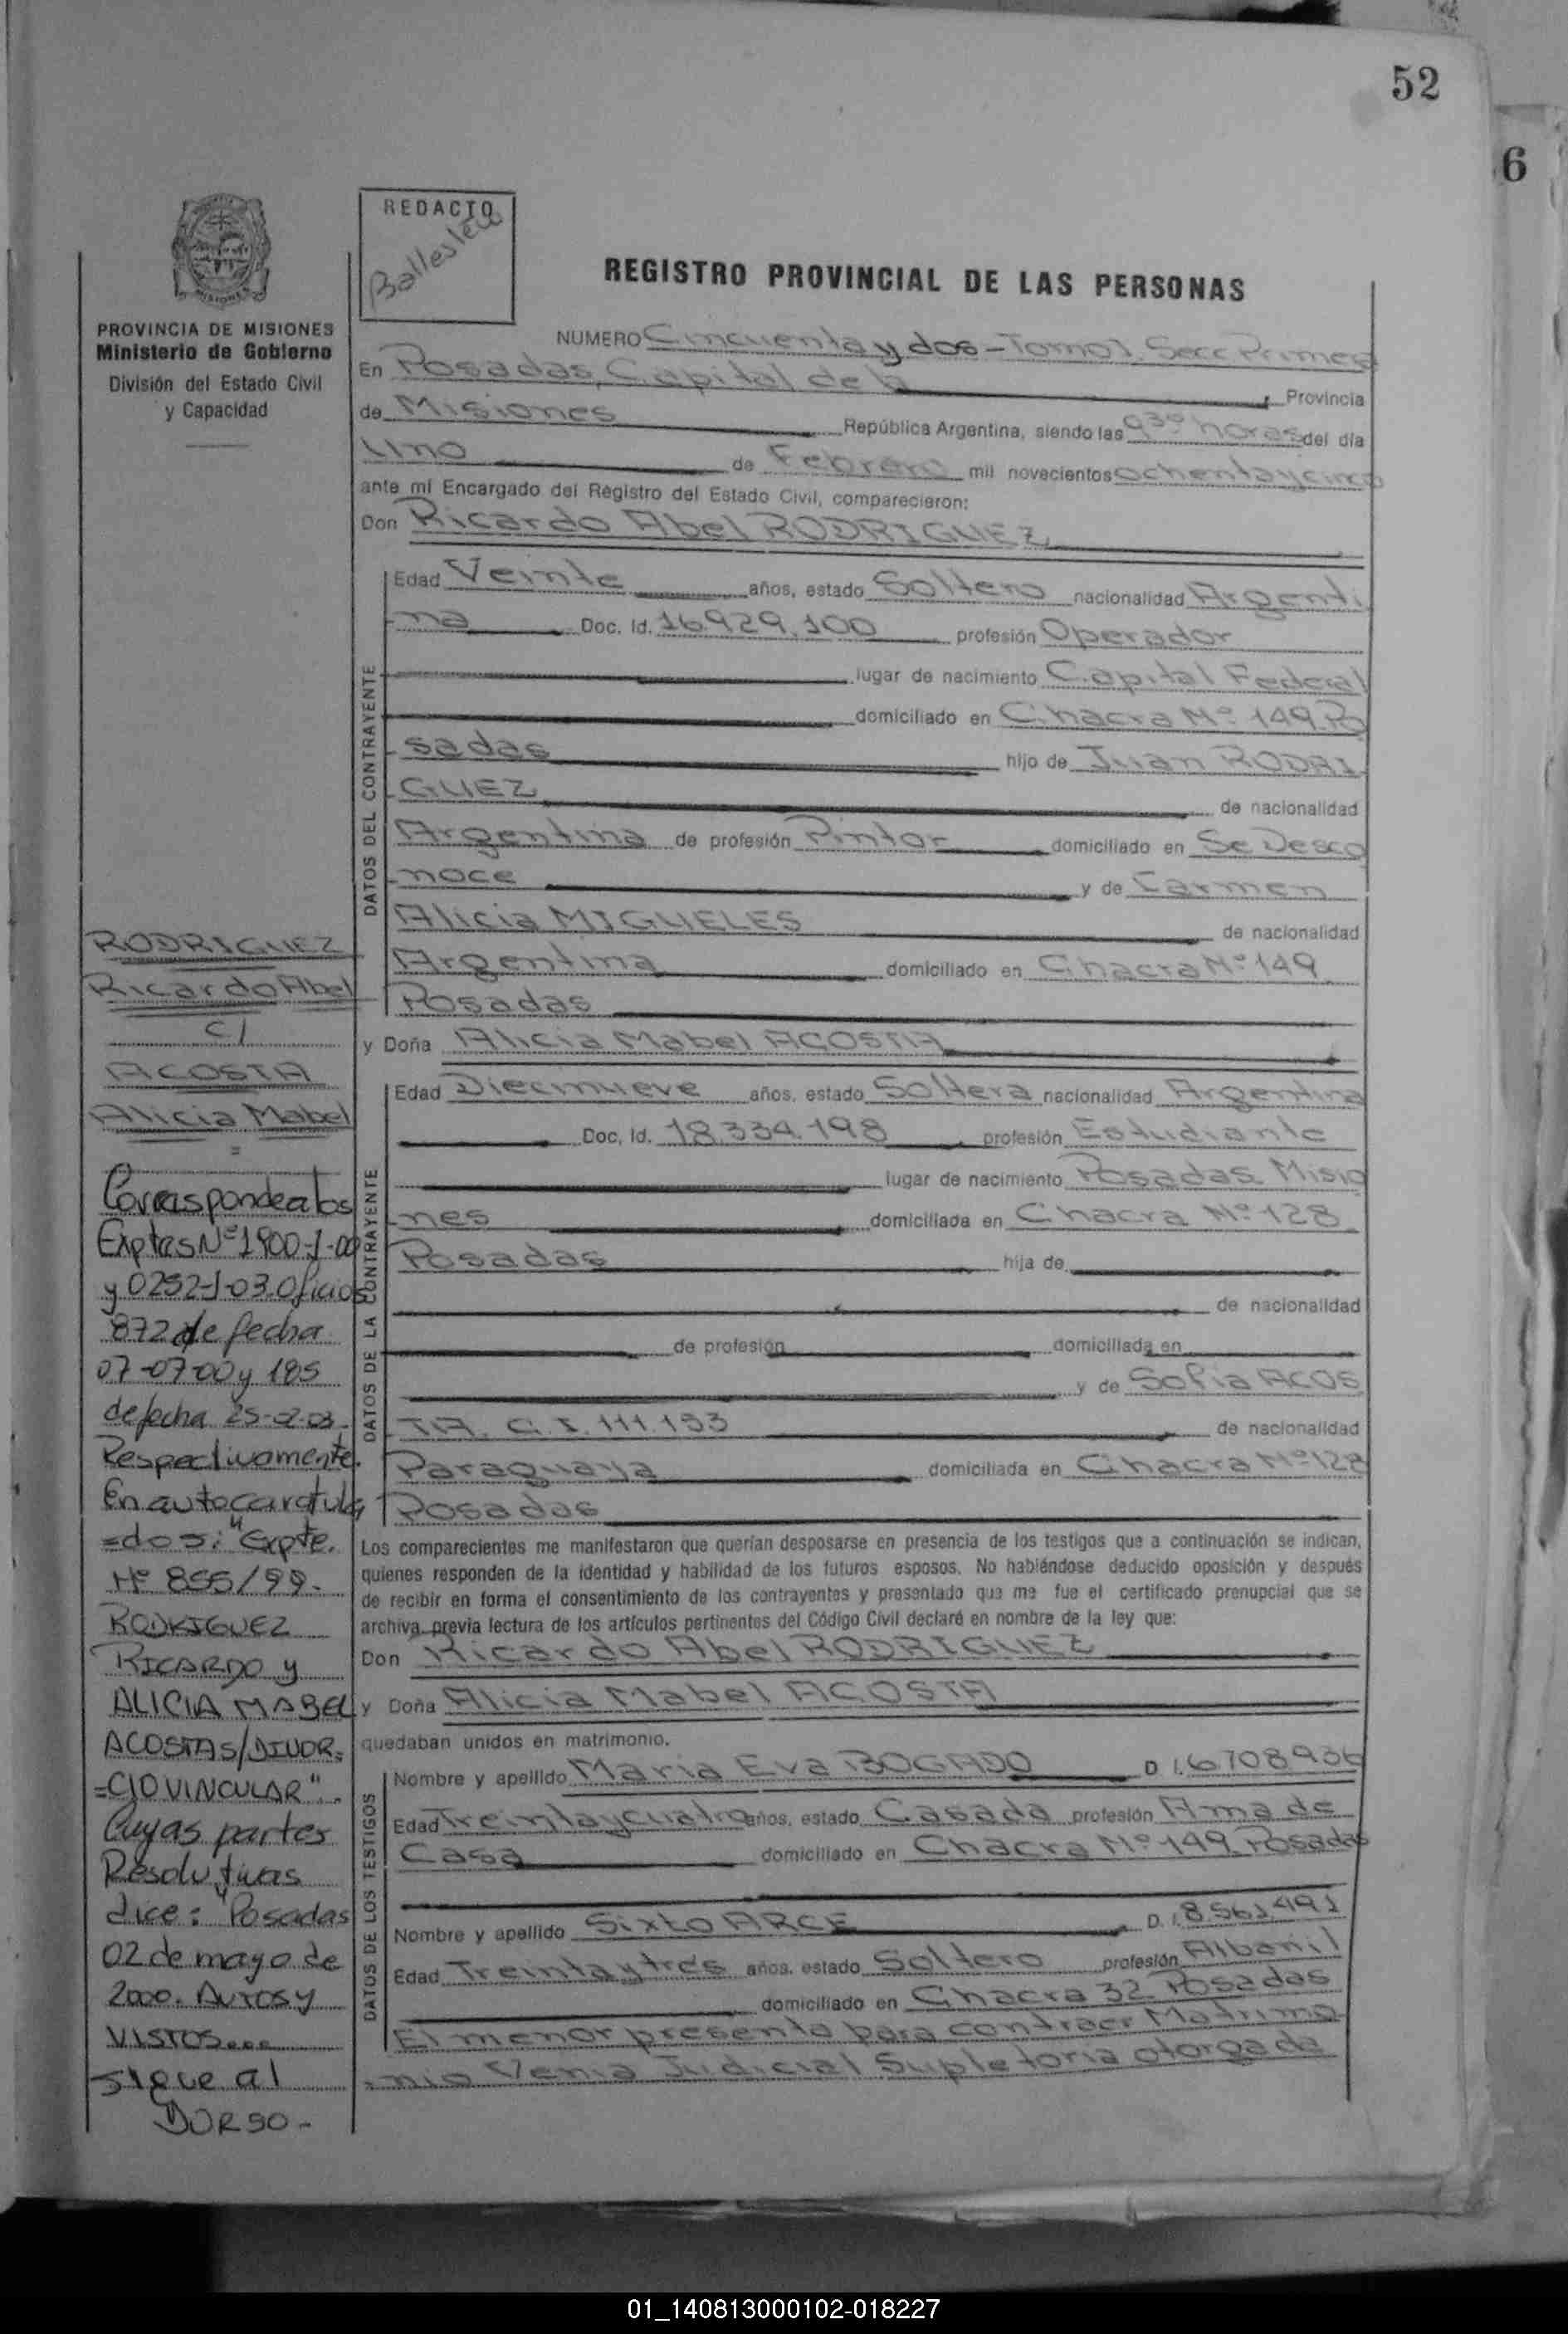 52
6
REDACTO
Ballestero
REGISTRO PROVINCIAL DE LAS PERSONAS
PROVINCIA DE MISIONES
Ministerio de Gobierno
División del Estado Civil
y Capacidad
NUMERO Cincuenta y dos - Tomo 1. Secc Primera
En Posadas, Capital de la Provincia
de Misiones República Argentina, siendo las 9 30 horas del día
Uno de Febrero mil novecientos ochenta y cinco
ante mí Encargado del Registro del Estado Civil, comparecieron:
Don Ricardo Abel RODRIGUEZ
DATOS DEL CONTRAYENTE
Edad Veinte años, estado Soltero nacionalidad Argenti
na Doc. Id. 16.929.100 profesión Operador
lugar de nacimiento Capital Federal
domiciliado en Chacra Nº 149. Po
sadas hijo de Juan RODRI
GUEZ de nacionalidad
Argentina de profesión Pintor domiciliado en Se Desco
noce y de Carmen
Alicia MIGUELES de nacionalidad
Argentina domiciliado en Chacra Nº 149
Posadas
y Doña Alicia Mabel ACOSTA
DATOS DE LA CONTRAYENTE
Edad Diecinueve años, estado Soltera nacionalidad Argentina
Doc. Id. 18.334.198 profesión Estudiante
lugar de nacimiento Posadas Misio
nes domiciliada en Chacra Nº 128
Posadas hija de
de nacionalidad
de profesión domiciliada en
y de Sofia ACOS
TA. C. I. 111.153 de nacionalidad
Paraguaya domiciliada en Chacra Nº 128
Posadas
Los comparecientes me manifestaron que querían desposarse en presencia de los testigos que a continuación se indican,
quienes responden de la identidad y habilidad de los futuros esposos. No habiéndose deducido oposición y después
de recibir en forma el consentimiento de los contrayentes y presentado que me fue el certificado prenupcial que se
archiva previa lectura de los artículos pertinentes del Código Civil declaré en nombre de la ley que:
Don Ricardo Abel RODRIGUEZ
y Doña Alicia Mabel ACOSTA
quedaban unidos en matrimonio.
DATOS DE LOS TESTIGOS
Nombre y apellido Maria Eva BOGADO D.I. 6.708.936
Edad Treinta y cuatro años, estado Casada profesión Ama de
Casa domiciliado en Chacra Nº 149. Posadas
Nombre y apellido Sixto ARCE D.I. 8.561.491
Edad Treinta y tres años, estado Soltero profesión Albañil
domiciliado en Chacra 32. Posadas
El menor presenta para contraer Matrimo
nio Venia Judicial Supletoria otorgada
RODRIGUEZ
Ricardo Abel
c/
ACOSTA
Alicia Mabel
=
Corresponde a los
Exptes Nº 1900-J-00
y 0252-J-03. Oficios
872 de fecha
07-07-00 y 185
de fecha 25-02-03.
Respectivamente.
En auto caratula
=dos: "Expte.
Nº 855/99.
RODRIGUEZ
RICARDO y
ALICIA MABEL
ACOSTA S/DIVOR=
=CIO VINCULAR".
Cuyas partes
Resolutivas
dice: "Posadas
02 de mayo de
2000. AUTOS y
VISTOS...
sigue al
DORSO-
01_140813000102-018227